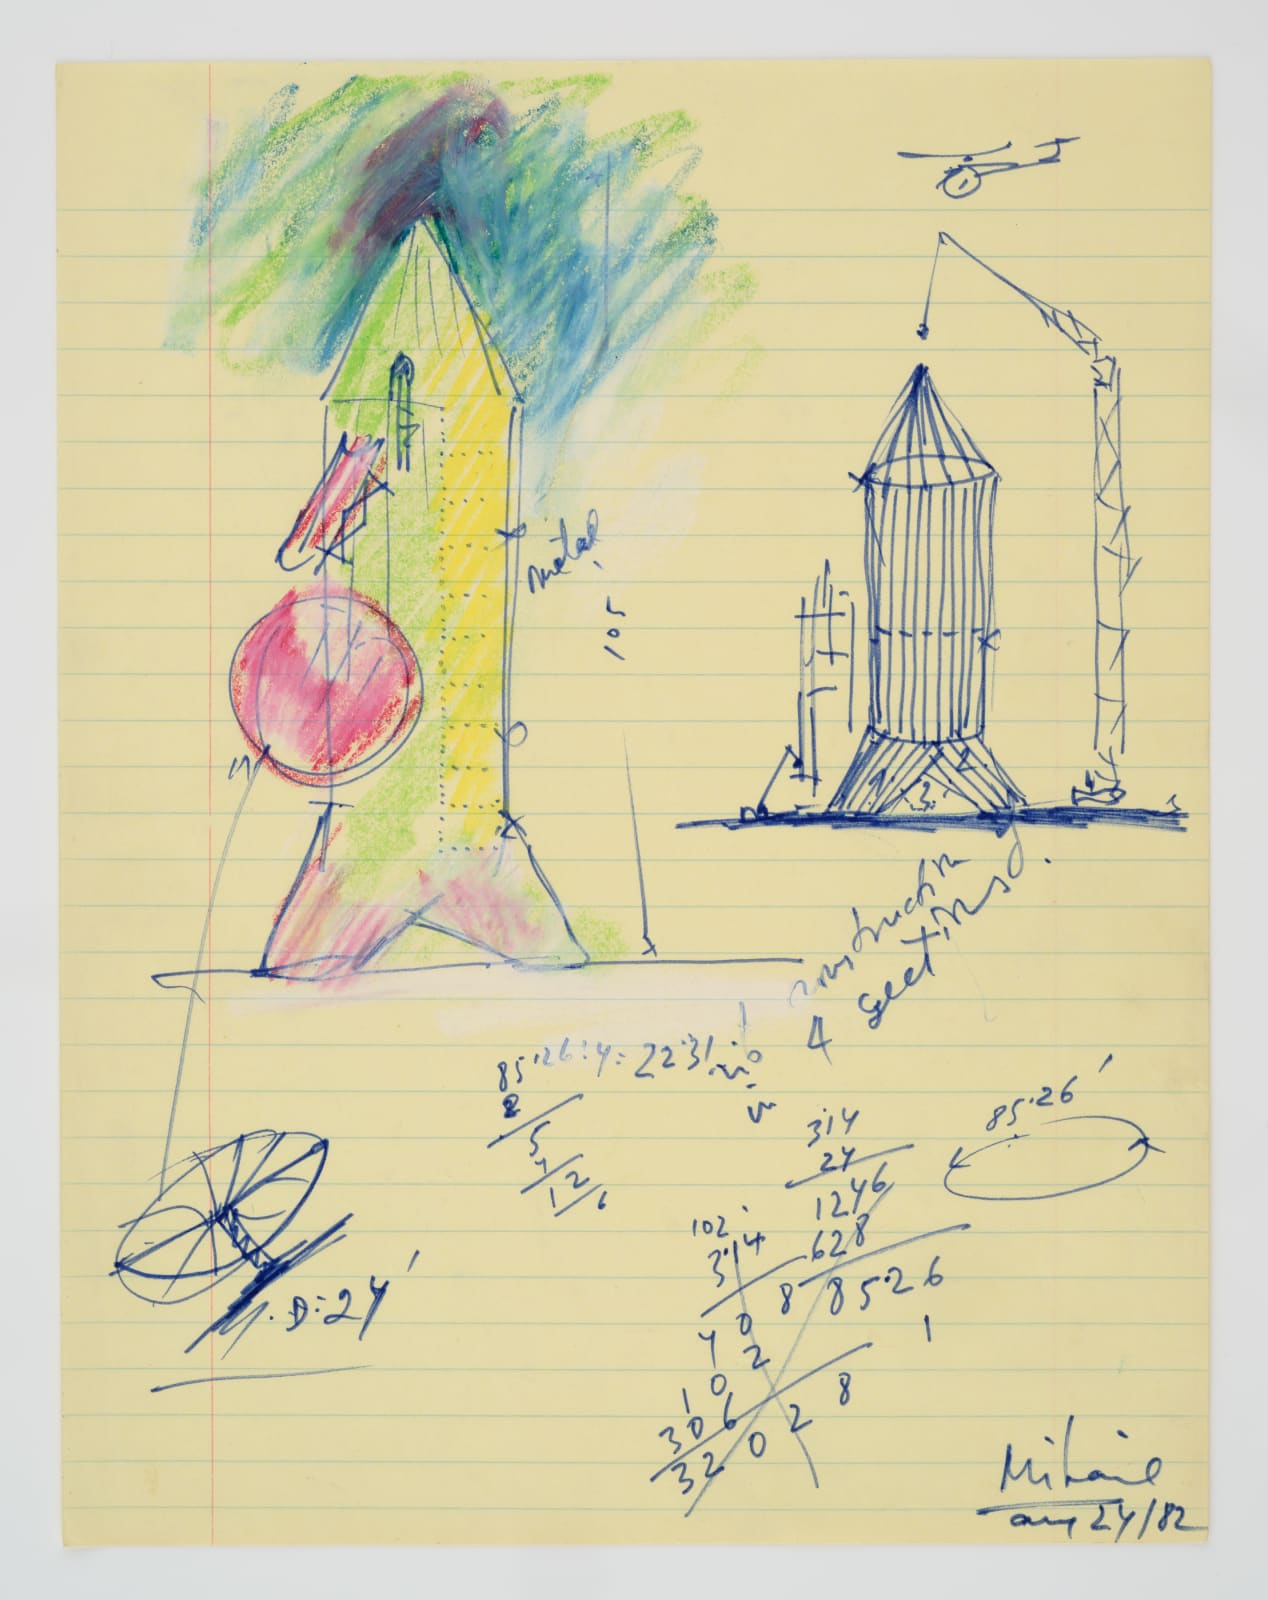 metal
105
1.
2.
3.
construction
4 sections.
85·26:4=22·31
8
5
4
12
6
85·26'
3·14
24
1246
628
85·26
102
3·14
408
102
306
32028
1
D:24'
Mihail
aug 24/82